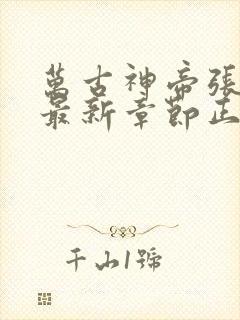 萬古神帝張
最新章節正
千山1號